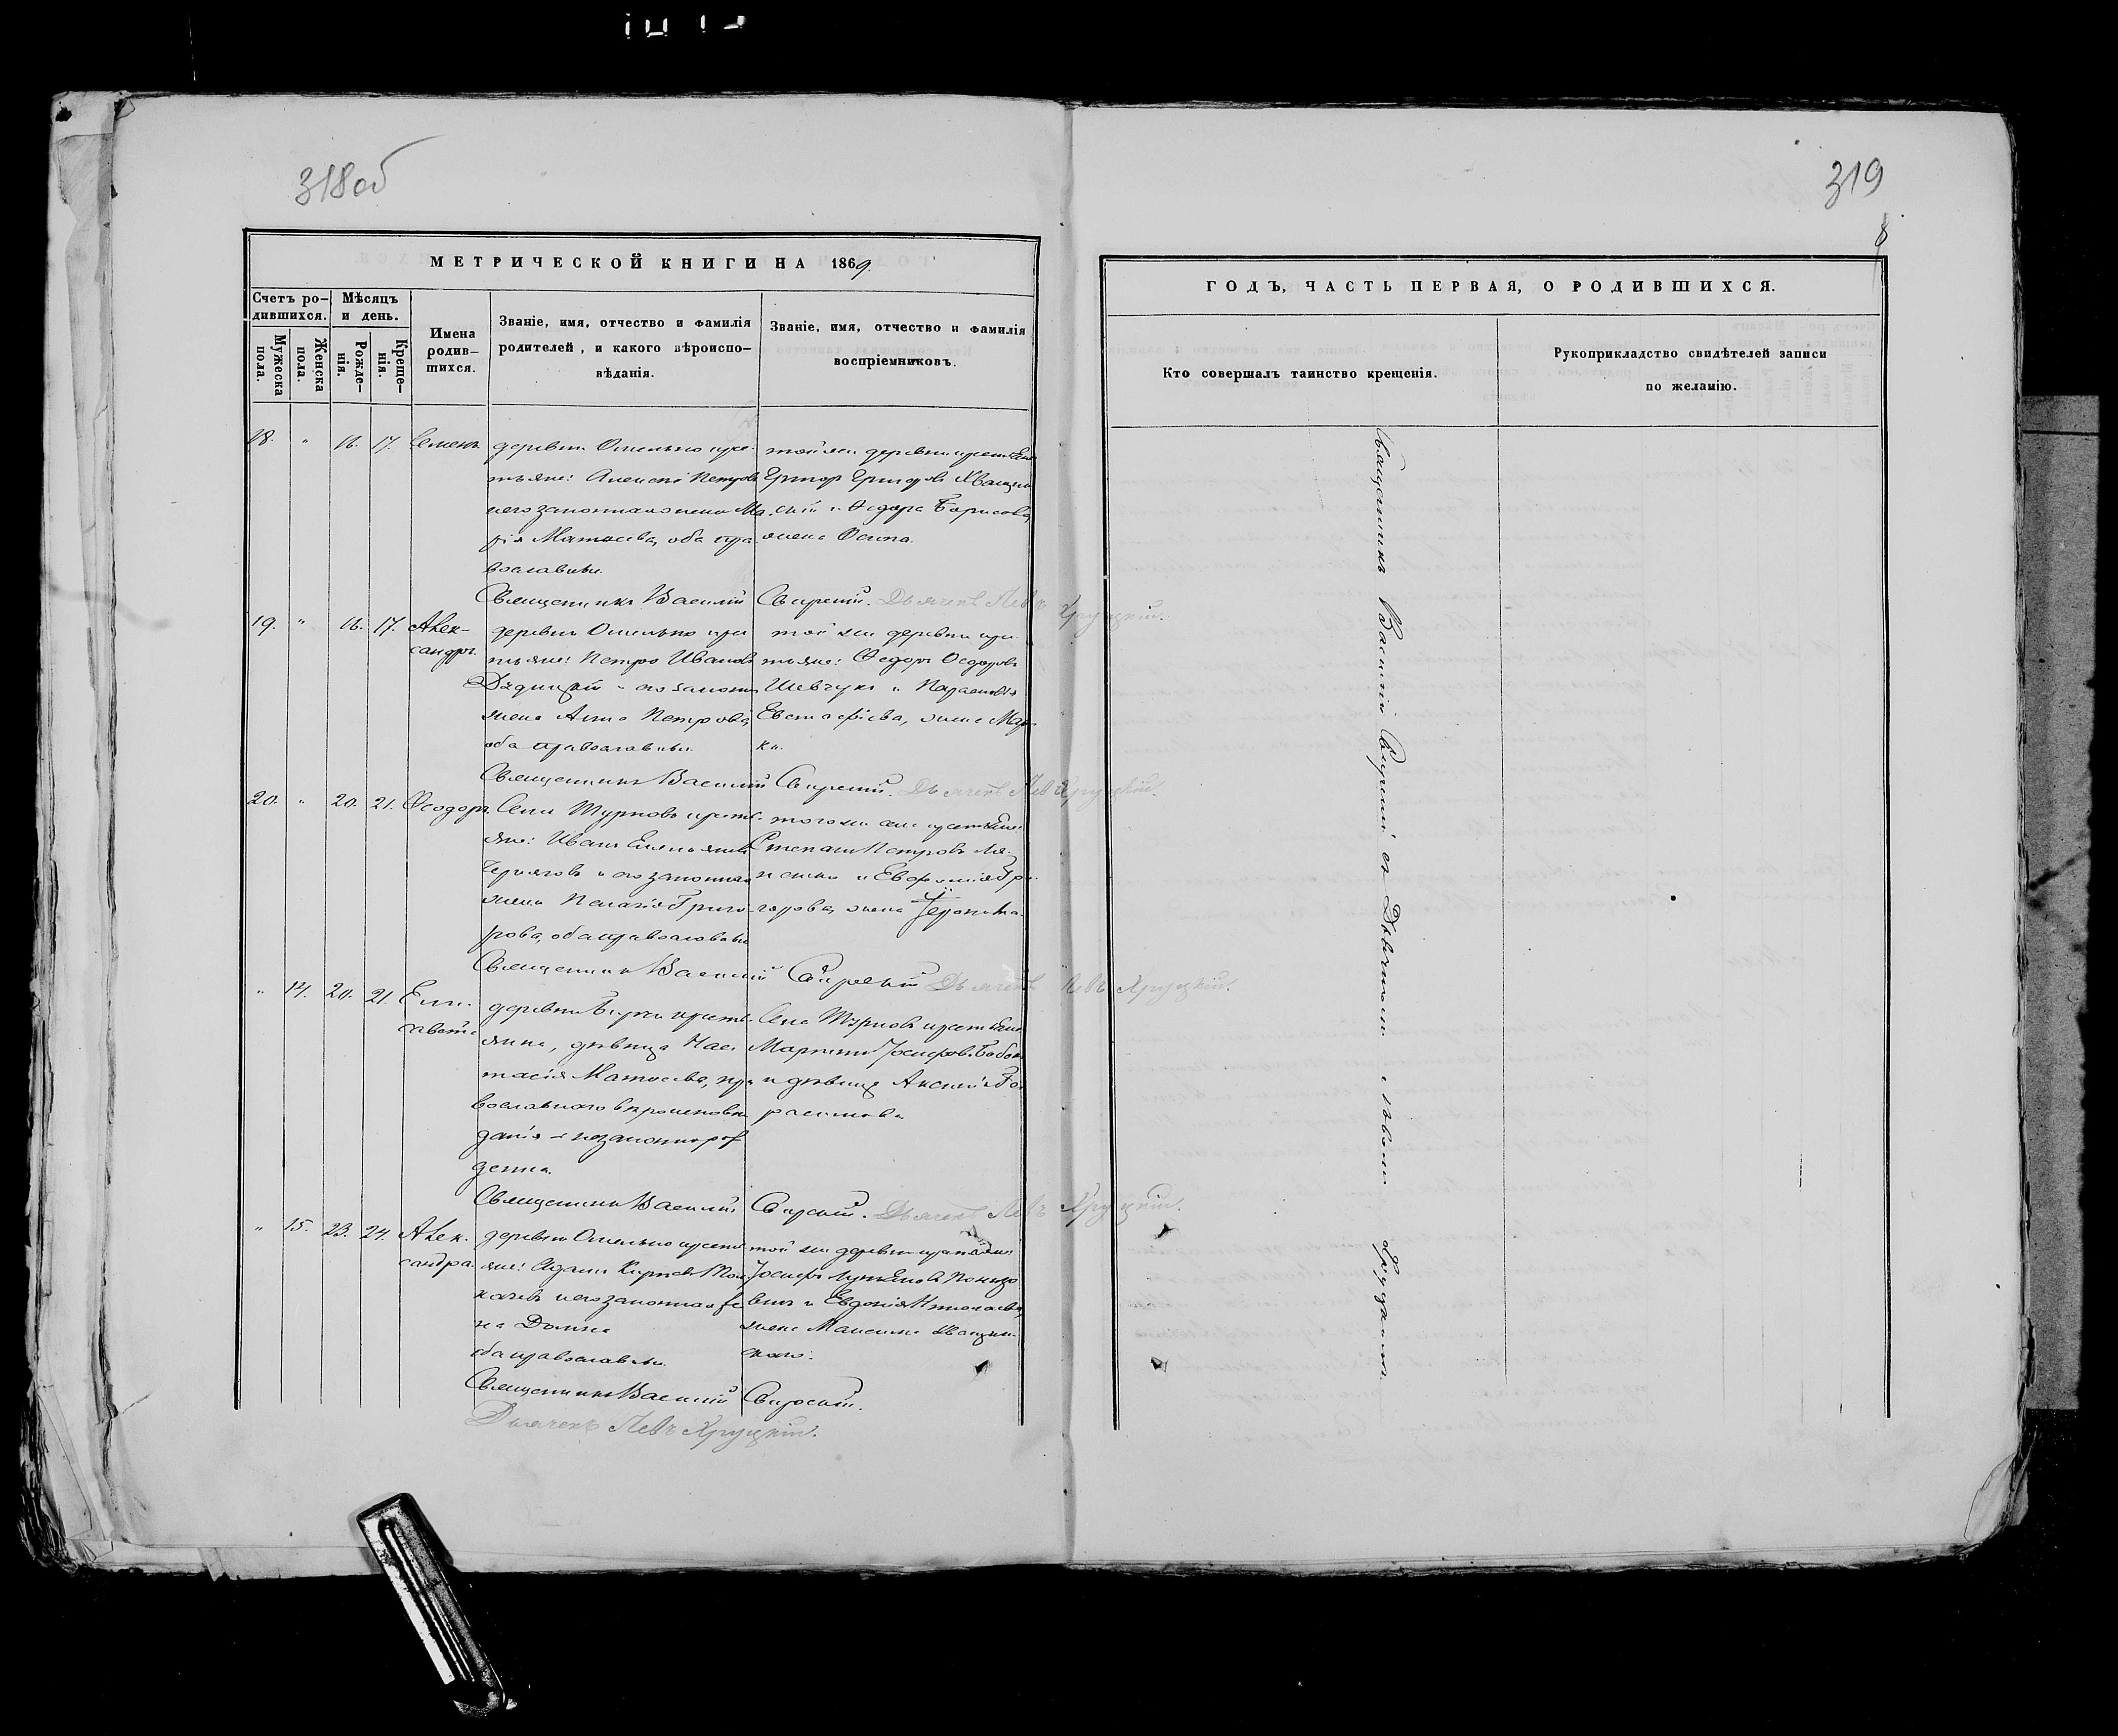 318об
МЕТРИЧЕСКОЙ КНИГИ НА 1869.
Счетъ ро-
дившихся.
Мѣсяцъ
и день.
Мужеска
пола.
Женска
пола.
Рожде-
нія.
Креще-
нія.
Имена
родив-
шихся.
Званіе, имя, отчество и фамилія
родителей, и какого вѣроиспо-
вѣданія.
Званіе, имя, отчество и фамилія
воспріемниковъ.
18. " 16. 17. Семенъ
деревни Омельно крес-
тьяне: Алексѣй Петровъ
и его законная жена Ма-
рія Матѳеева, оба пра
вославные.
той же деревни крестьяне
Григор Григоровъ
и Ѳедора Борисова,
жена Осипа.
Священникъ Василій Свирскій. Дьячекъ Левъ Хруцкій.
19. " 16. 17. Алек-
сандръ.
деревни Омельно крес
тьяне: Петро Ивановъ
и его законн
жена Анна Петрова,
оба православные.
той же деревни кре
тьяне: Ѳедоръ Ѳедоровъ
Шевчукъ и Параскевія
Евстафіева, жена Мар-
ка.
Священникъ Василій Свирскій. Дьячекъ Левъ Хруцкій.
20. " 20. 21. Ѳеодоръ.
Села Турковъ кресть-
яне: Иванъ Емельяновъ
и его законная
жена Пелагія Григо-
рова, оба православные
того же села крестьяне:
Степанъ Петровъ
и Евфимія Гри-
горова, жена
Священникъ Василій Свирскій Дьячекъ Левъ Хруцкій.
" 14. 20. 21. Ели-
савета
деревни кресть-
янка, дѣвица Нас-
тасія Матѳеева, пра
вославнаго вѣроисповѣ
данія – незаконнорож
денна.
Села Турковъ крестьяне
Мартинъ Іосифовъ
и дѣвица Аксинія Ге-
расимова
Священникъ Василій Свирскій. Дьячекъ Левъ Хруцкій.
" 15. 23. 24. Алек-
сандра.
деревни Омельно кресть
яне: Адамъ
и его законная же
на Домна
оба православные.
той же деревни крестьяне
Іосифъ
и Евдокія Николаева,
жена Максима
скаго.
Священникъ Василій Свирскій.
Дьячекъ Левъ Хруцкій.
319
8
ГОДЪ, ЧАСТЬ ПЕРВАЯ, О РОДИВШИХСЯ.
Кто совершалъ таинство крещенія.
Рукоприкладство свидѣтелей записи
по желанію.
Священникъ Василій Свирскій съ Дьячкомъ Львомъ Хруцкимъ.